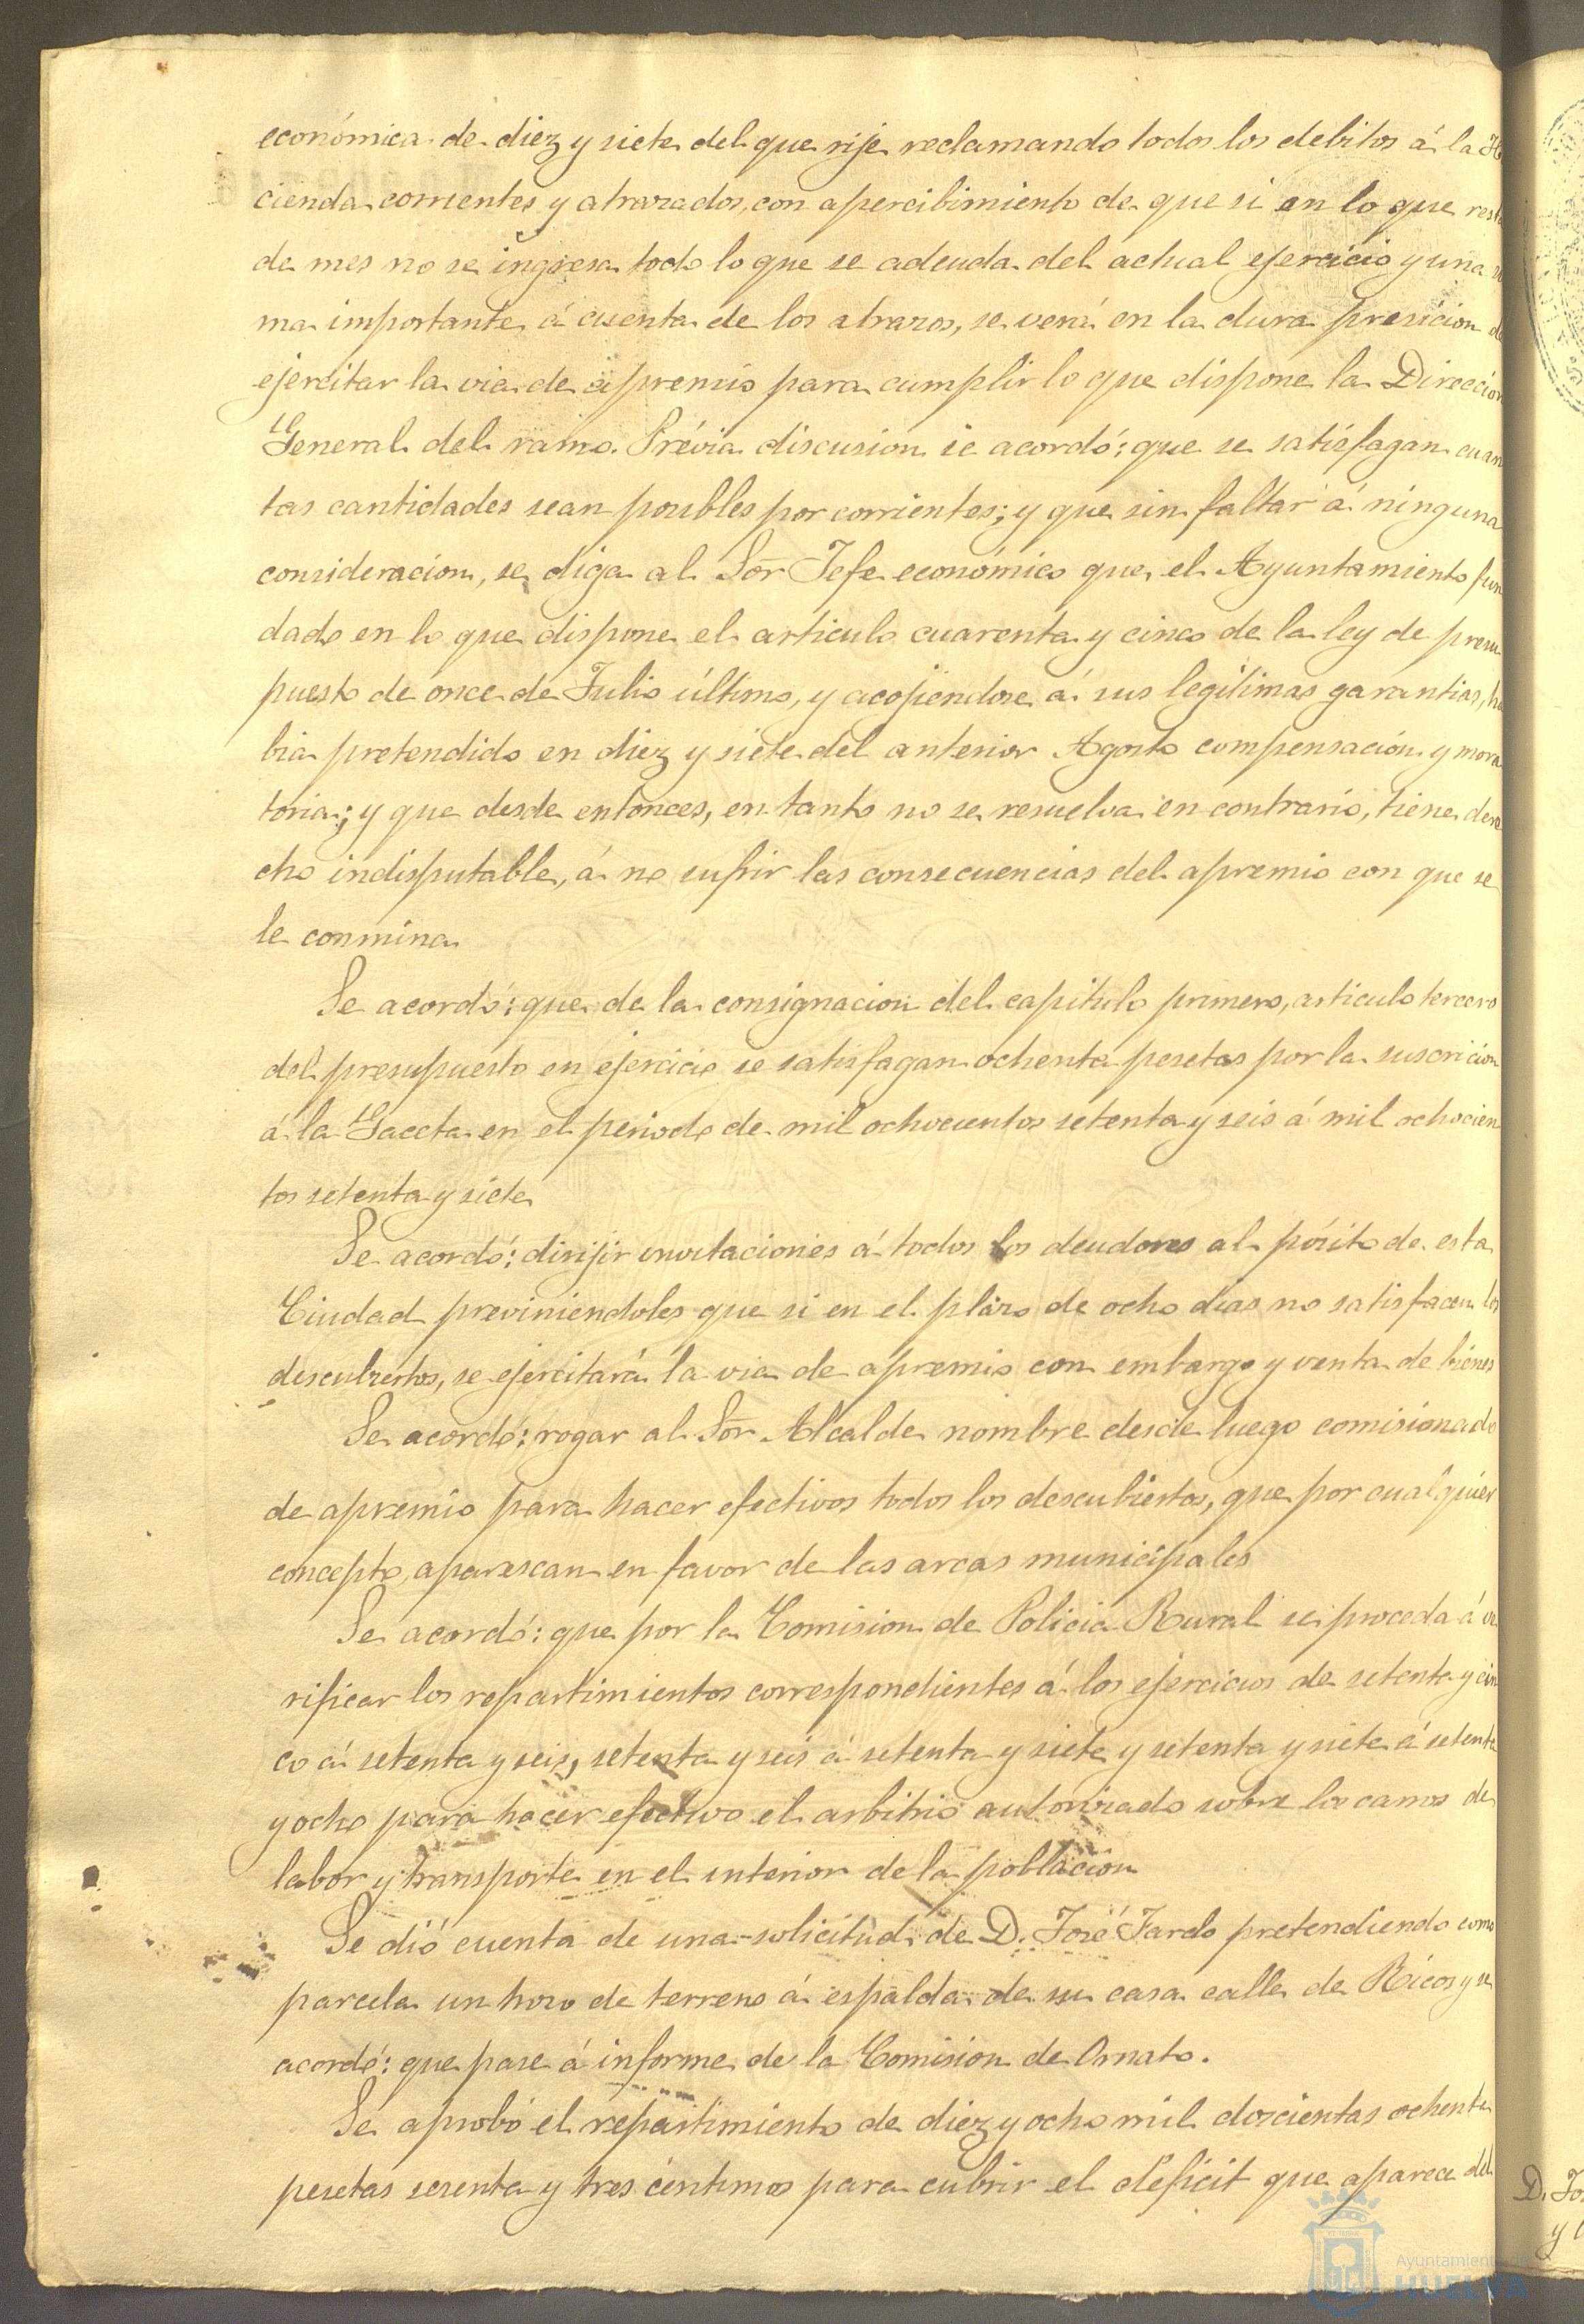 económica de diez y siete del que rije reclamando todos los debitos á la Ha
cienda corrientes y atrazados, con apercibimiento de que si en lo que resta
de mes no se ingresa todo lo que se adeuda del actual ejercicio y una su
ma importante á cuenta de los atrazos, se verá en la dura presicion de
ejercitar la via de apremio para cumplir lo que dispone la Direccion
General del ramo. Prévia discusion se acordó: que se satisfagan cuan
tas cantidades sean posibles por corrientes; y que sin faltar á ninguna
consideracion, se diga al Sor Jefe económico que el Ayuntamiento fun
dado en lo que dispone el articulo cuarenta y cinco de la ley de presu
puesto de once de Julio último, y acojiendose á sus legitimas garantias, ha
bia pretendido en diez y siete del anterior Agosto compensación y mora
toria; y que desde entonces, en tanto no se resuelva en contrario, tiene dere
cho indisputable, á no sufrir las consecuencias del apremio con que se
le conmina
Se acordó: que de la consignacion del capitulo primero, articulo tercero
del presupuesto en ejercicio se satisfagan ochenta pesetas por la suscricion
á la Gaceta en el periodo de mil ochocientos setenta y seis á mil ochocien
tos setenta y siete
Se acordó: dirijir invitaciones á todos los deudores al pósito de esta
Ciudad previniendoles que si en el plazo de ocho dias no satisfacen los
descubiertos, se ejercitará la via de apremio con embargo y venta de bienes
Se acordó: rogar al Sor Alcalde nombre desde luego comisionado
de apremio para hacer efectivos todos los descubiertos, que por cualquier
concepto, aparescan en favor de las arcas municipales
Se acordó: que por la Comision de Policia Rural se proceda á ve
rificar los repartimientos correspondientes á los ejercicios de setenta y cin
co á setenta y seis, setenta y seis á setenta y siete y setenta y siete á setenta
y ocho para hacer efectivo el arbitrio autorizado sobre los carros de
labor y transporte en el interior de la poblacion
Se dió cuenta de una solicitud de D. José Jardo pretendiendo como
parcela un trozo de terreno á espalda de su casa calle de Ricos y se
acordó: que pase á informe de la Comision de Ornato.
Se aprobó el repartimiento de diez y ocho mil doscientas ochenta
pesetas sesenta y tres centimos para cubrir el deficit que aparece del
D. Jo
y
Ayuntamiento de
HUELVA